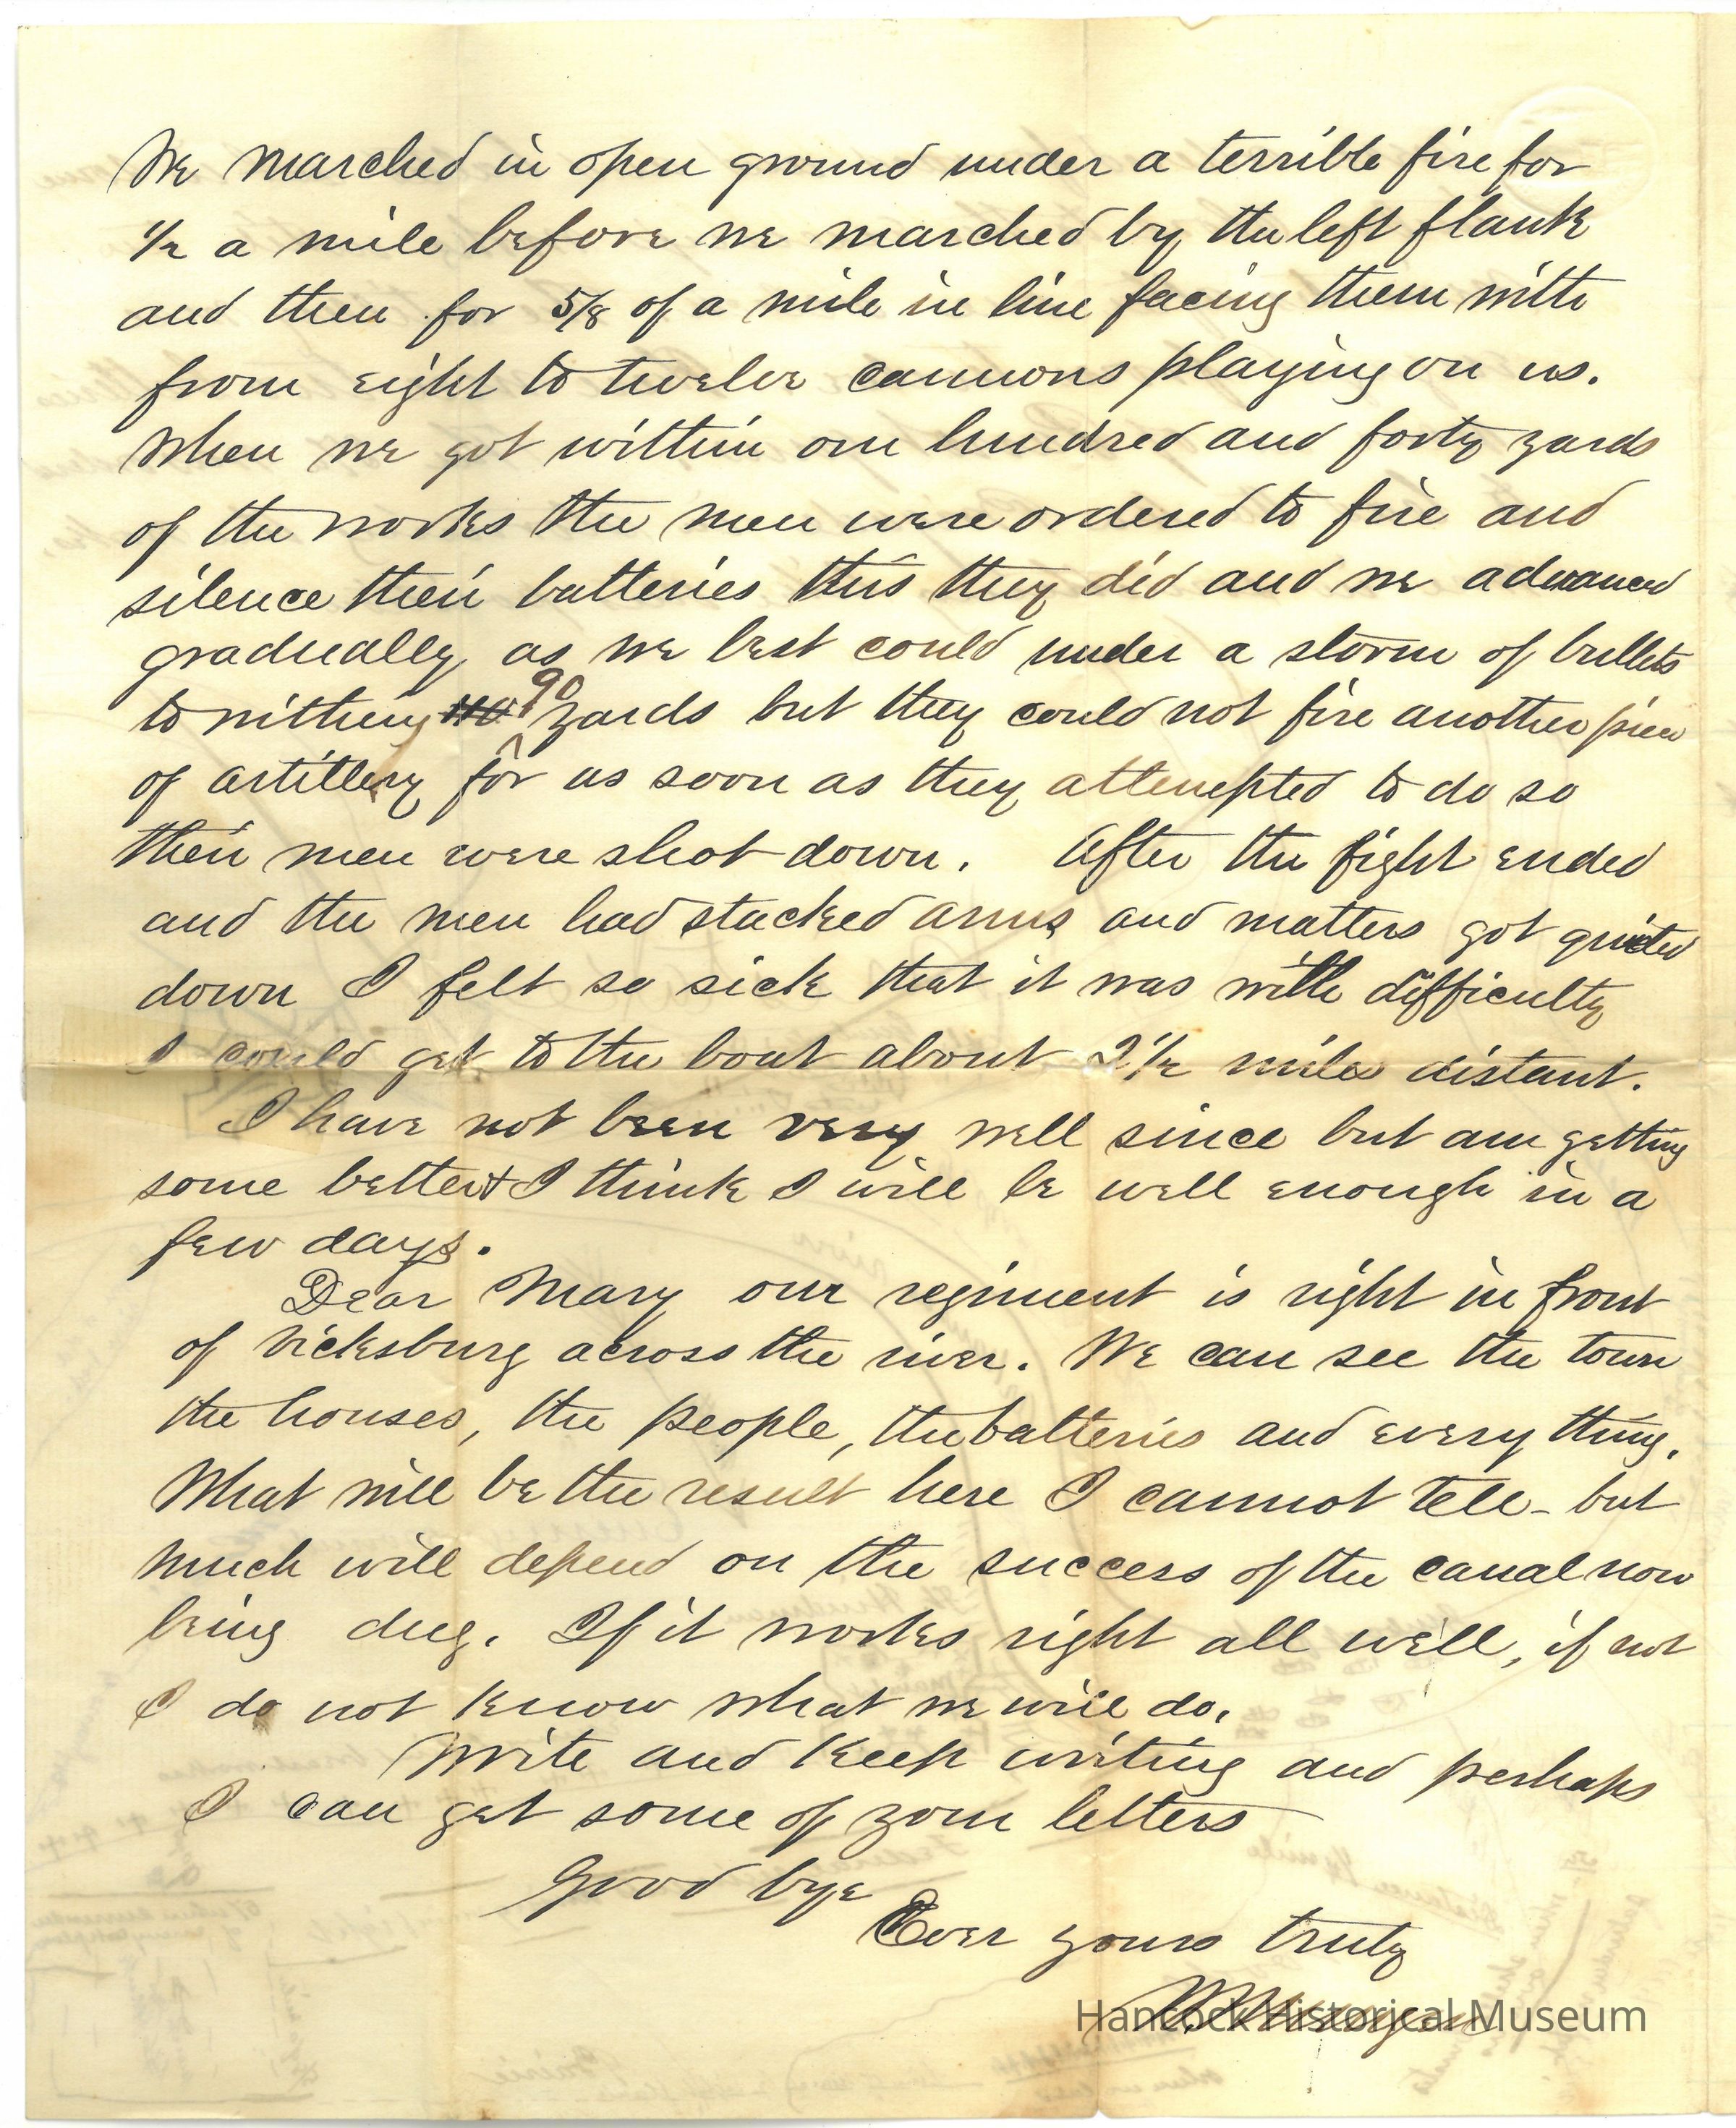 We marched in open ground under a terrible fire for
1/2 a mile before we marched by the left flank
and then for 5/8 of a mile in line facing them with
from eight to twelve cannons playing on us.
When we got within one hundred and forty yards
of the works the men were ordered to fire and
silence their batteries this they did and we advanced
gradually as we best could under a storm of bullets
to within 90 yards but they could not fire another piece
of artillery for as soon as they attempted to do so
their men were shot down. After the fight ended
and the men had stacked arms and matters got quieted
down I felt so sick that it was with difficulty
I could get to the boat about 2 1/2 miles distant.
I have not been very well since but am getting
some better & I think I will be well enough in a
few days.
Dear Mary our regiment is right in front
of Vicksburg across the river. We can see the town
the houses, the people, the batteries and every thing.
What will be the result here I cannot tell - but
much will depend on the success of the canal now
being dug. If it works right all well, if not
I do not know what we will do.
Write and keep writing and perhaps
I can get some of your letters
Good bye
Ever yours truly
Hancock Historical Museum